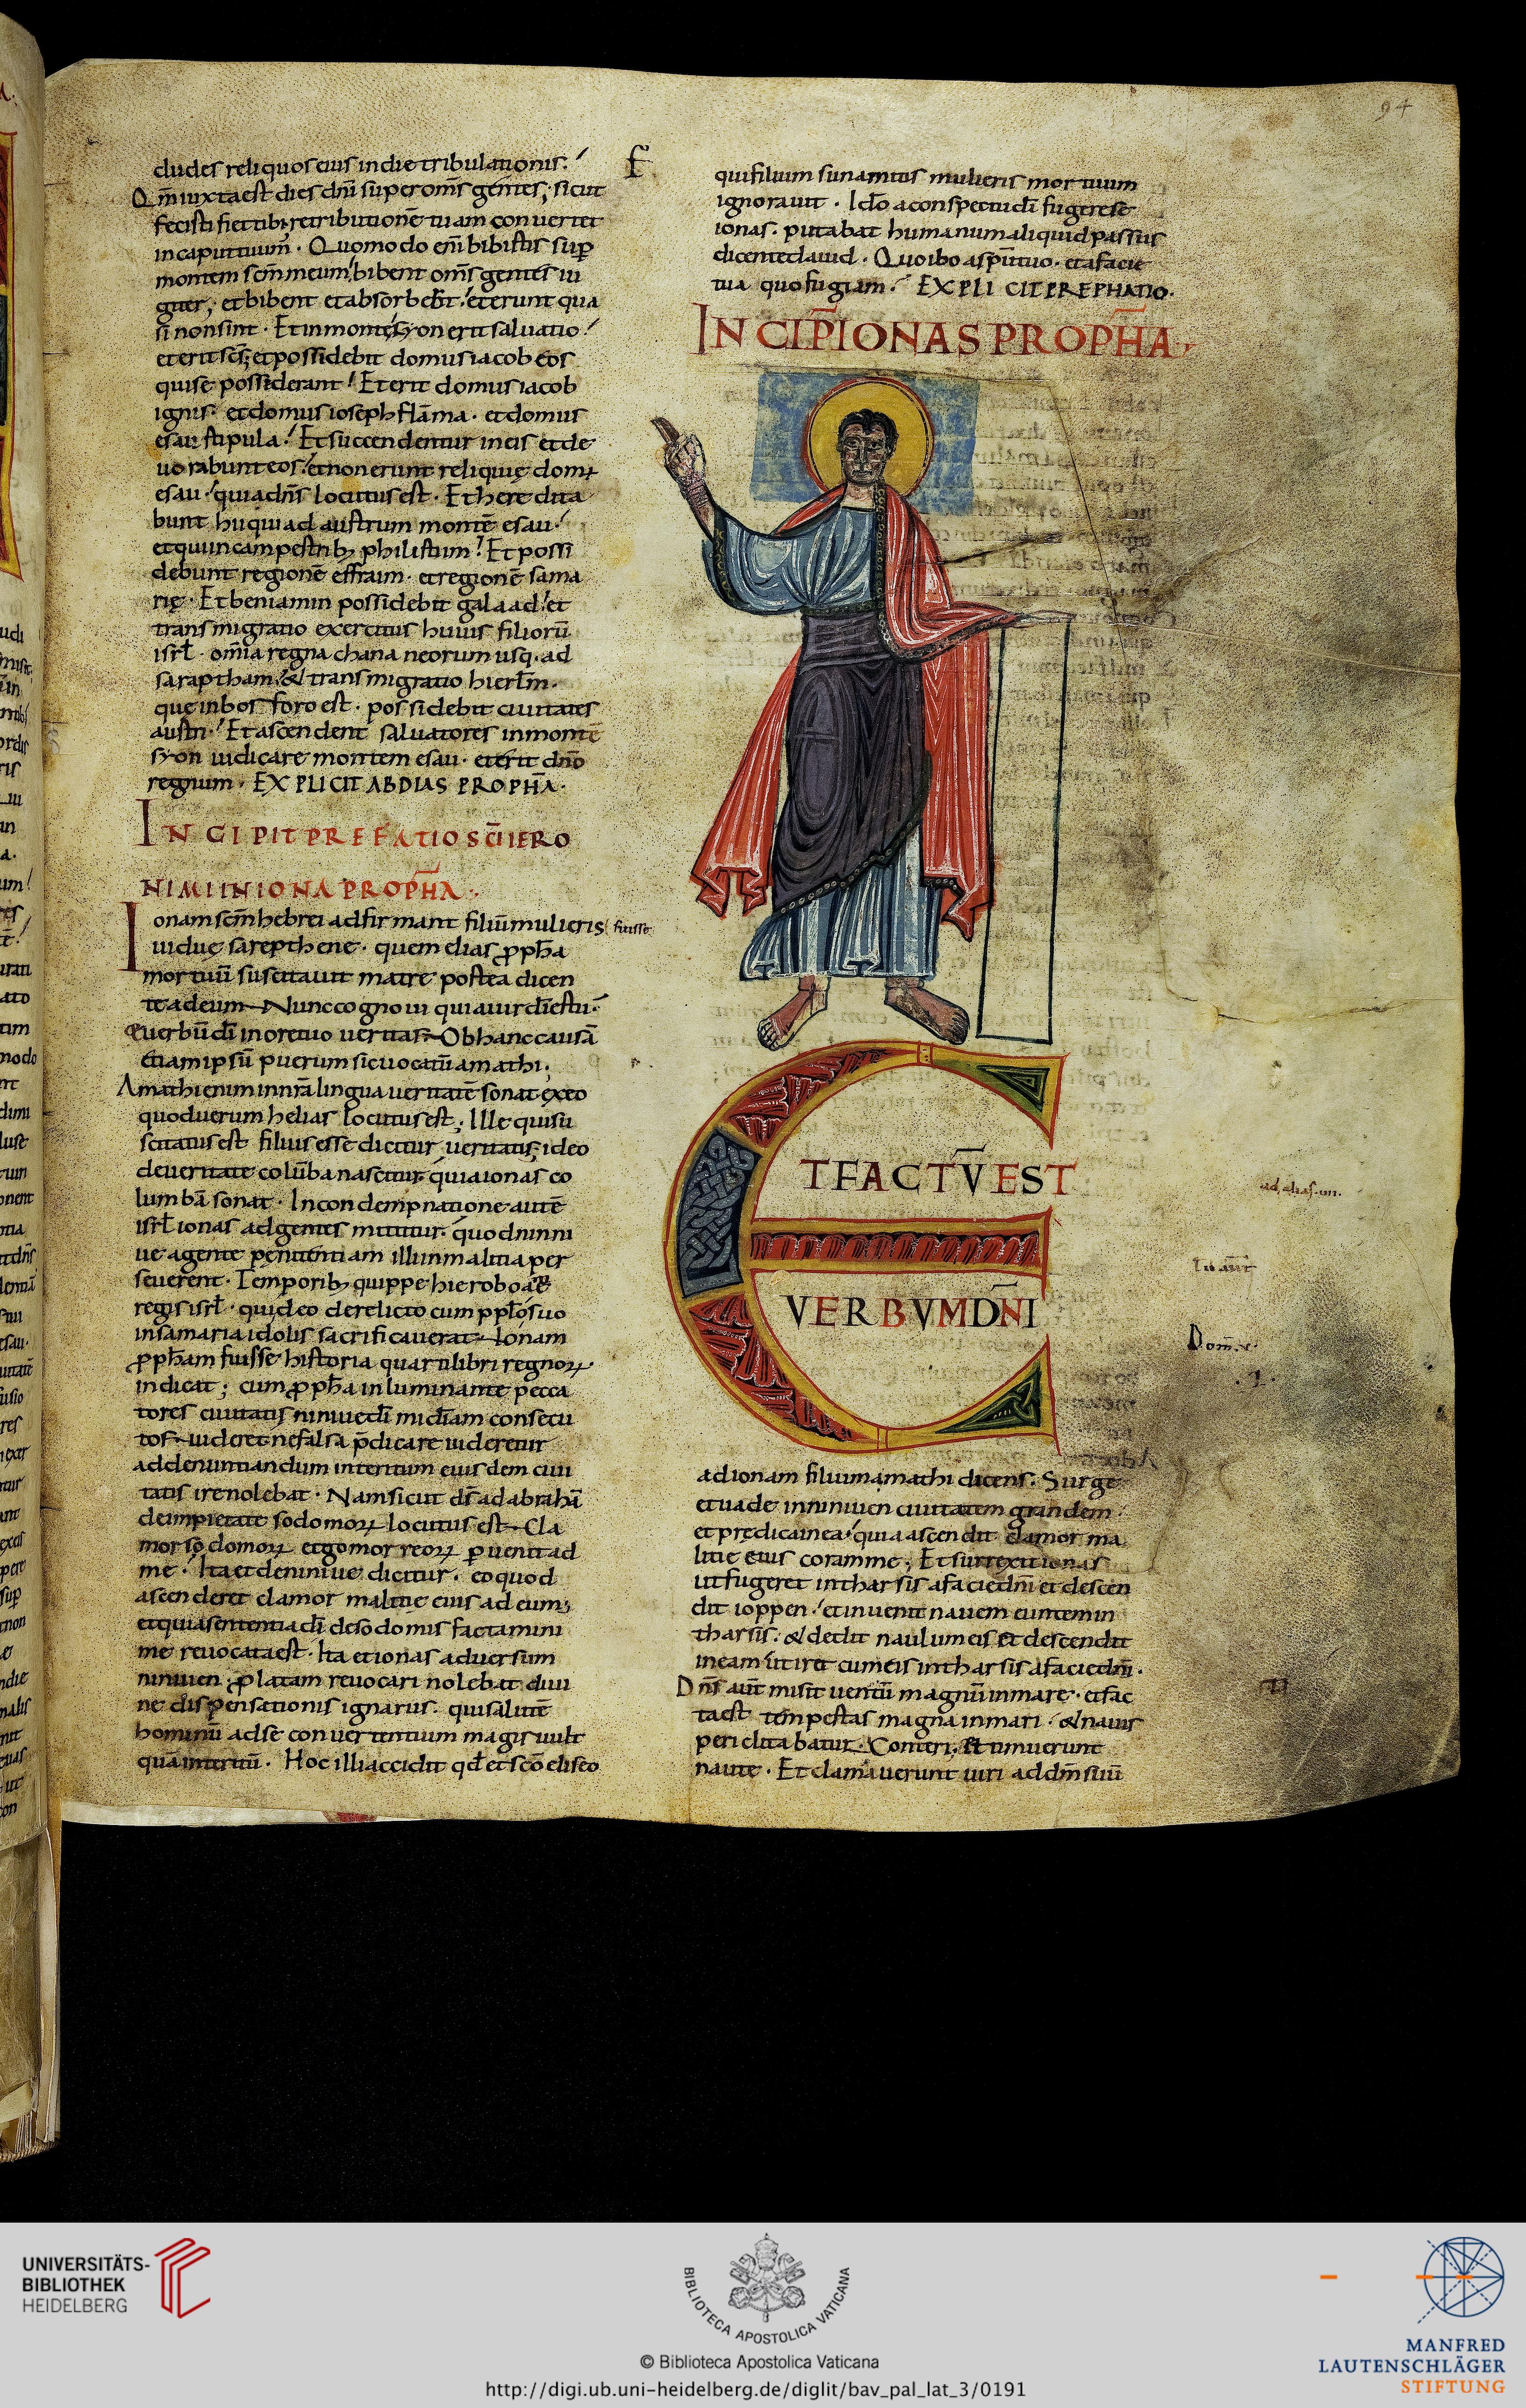 94
cludes reliquos eius in die tribulationis.
Qm̄ iuxta est dies dn̄i super om̄s gentes; sicut
fecisti fiet tibi; retributionē tuam conuertet
in caput tuum. Quomodo eni bibistis sup̄
montem sc̄m meum; bibent om̄s gentes iu
giter; et bibent et absorbebt̄. et erunt qua
si non sint. Et in monte syon erit saluatio.
et erit sc̄s; et possidebit domus iacob eos
qui se possiderant. Et erit domus iacob
ignis. et domus ioseph flāma. et domus
esau stipula. Et succendentur in eis et de
uorabunt eos. et non erunt reliquię dom
esau. quia dn̄s locutus est. Et heredita
bunt hi qui ad austrum montē esau.
et qui in campestrib; philistiim. Et possi
debunt regionē effraim. et regionē sama
rię. Et beniamin possidebit galaad. et
transmigratio exercitus huius filiorū
isrł. om̄ia regna chananeorum usq. ad
saraptham. & transmigratio hierłm.
que in bosforo est. possidebit ciuitates
austri. Et ascendent saluatores in montē
syon iudicare montem esau. et erit dn̄o
regnum. EXPLICIT ABDIAS PROPH̄A.
INCIPIT PREFATIO SC̄I IERO
NIMI IN IONA PROPH̄A.
Ionam sc̄m hebrei adfirmant filiū mulieris fuisse
uidue sarepthene. quem elias p̱ph̄a
mortuū suscitauit matre postea dicen
te ad eum. Nunc cognoui quia uir dī es tu.
& uerbū dī in ore tuo ueritas. Ob hanc causā
etiam ipsū puerum sic uocatū amathi.
Amathi enim in nr̄a lingua ueritatē sonat. & ex eo
quod uerum helias locutus est; Ille qui su
scitatus est filius esse dicitur ueritatis; ideo
de ueritate colūba nascitur. quia ionas co
lumbā sonat. In condempnatione autē
isrł ionas ad gentes mittitur. quod nini
ue agente penitentiam illi in malitia per
seuerent. Temporib; quippe hieroboā
regis isrł. qui deo derelicto cum ppło suo
in samaria idolis sacrificauerat. Ionam
p̱ph̄am fuisse historia quarti libri regnoꝝ
indicat; cum p̱ph̄a inluminante pecca
tores ciuitatis niniue dī mīam consecu
tos. uideret ne falsa p̄dicare uideretur
ad denuntiandum interitum eiusdem ciui
tatis ire nolebat. Nam sicut ds̄ ad abrahā
de impietate sodomoꝝ locutus est. Cla
mor sodomoꝝ et gomorreoꝝ puenit ad
me. Ita et de niniue dicitur. eo quod
ascenderet clamor malitię eius ad eum;
et quia sententia dī de sodomis facta mini
me reuocata est. Ita et ionas aduersum
niniuen p̱latam reuocari nolebat. diui
ne dispensationis ignarus. qui salutē
hominū ad se conuertentium magis uult
quā interitū. Hoc illi accidit qđ et sc̄o eliseo
qui filium sunamitis mulieris mortuum
ignorauit. Ido a conspectu dī fugere se
ionas. putabat humanum aliquid passus
dicente dauid. Quo ibo a sp̄u tuo. et a facie
tua quo fugiam. EXPLICIT PREPHATIO.
INCIP̄ IONAS PROPH̄A.
ET FACTV̄ EST
VERBVM DN̄I
ad ionam filium amathi dicens. Surge
et uade in niniuen ciuitatem grandem.
et predica in ea. quia ascendit clamor ma
litię eius coram me. Et surrexit ionas
ut fugeret in tharsis a facie dn̄i et descen
dit ioppen. et inuenit nauem euntem in
tharsis. & dedit naulum eis et descendit
in eam ut iret cum eis in tharsis a facie dn̄i.
Dn̄s aūt misit uentū magnū in mare. et fac
ta est tempestas magna in mari. & nauis
periclitabatur. Conteri. Et timuerunt
naute. Et clamauerunt uiri ad dm̄ suū
UNIVERSITÄTS-
BIBLIOTHEK
HEIDELBERG
BIBLIOTECA APOSTOLICA VATICANA
© Biblioteca Apostolica Vaticana
http://digi.ub.uni-heidelberg.de/diglit/bav_pal_lat_3/0191
MANFRED
LAUTENSCHLÄGER
STIFTUNG